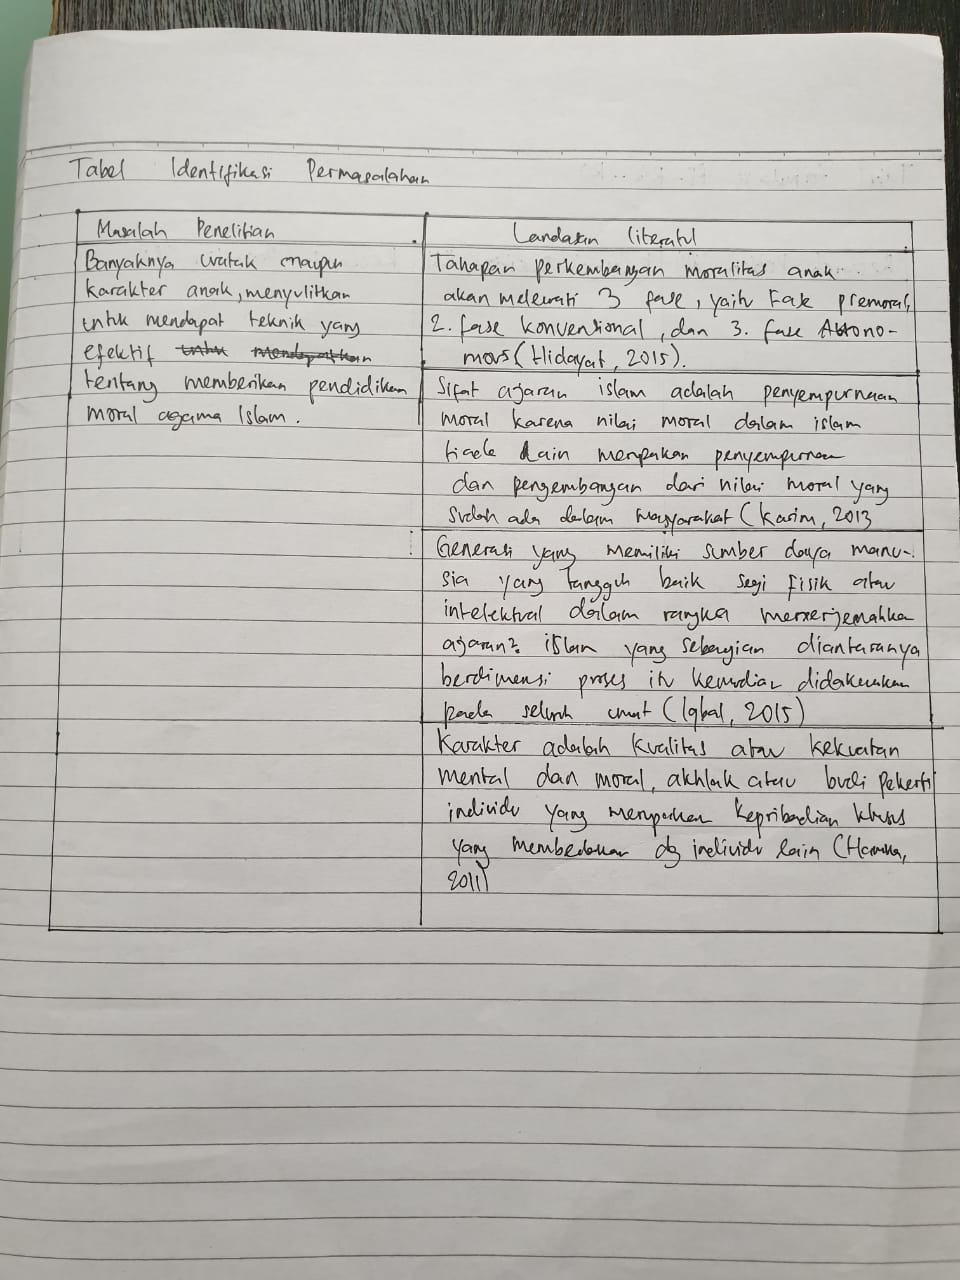 Tabel Identifikasi Permasalahan
Masalah Penelitian
Banyaknya watak maupun
karakter anak, menyulitkan
untuk mendapat teknik yang
efektif untuk mendapatkan
tentang memberikan pendidikan
moral agama Islam.
Landasan literatur
Tahapan perkembangan moralitas anak
akan melewati 3 fase, yaitu Fase premoral,
2. fase konvensional, dan 3. fase Autono-
mous (Hidayat, 2015).
Sifat ajaran islam adalah penyempurnaan
moral karena nilai moral dalam islam
tidak lain merupakan penyempurnaan
dan pengembangan dari nilai moral yang
sudah ada dalam masyarakat (Karim, 2013
Generasi yang memiliki sumber daya manu-
sia yang tangguh baik segi fisik atau
intelektual dalam rangka menterjemahkan
ajaran2 islam yang sebagian diantaranya
berdimensi proses itu kemudian
pada seluruh umat (Iqbal, 2015)
Karakter adalah kualitas atau kekuatan
mental dan moral, akhlak atau budi pekerti
individu yang merupakan kepribadian khusus
yang membedakan dg individu lain (Hamka,
2011)